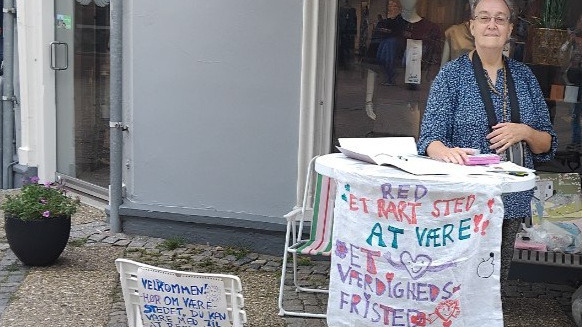 RED
ET RART STED
AT VÆRE
DET
VÆRDIGHEDS
FRISTED
VELKOMMEN!
HØR OM VÆRE
STEDET, DU KAN
VÆRE MED TIL